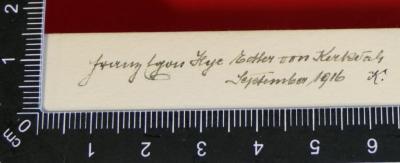 Franz Igon Hye Edler von Kerkdal
September 1916 K.
2
1
0
cm
1 2 3 4 5 6